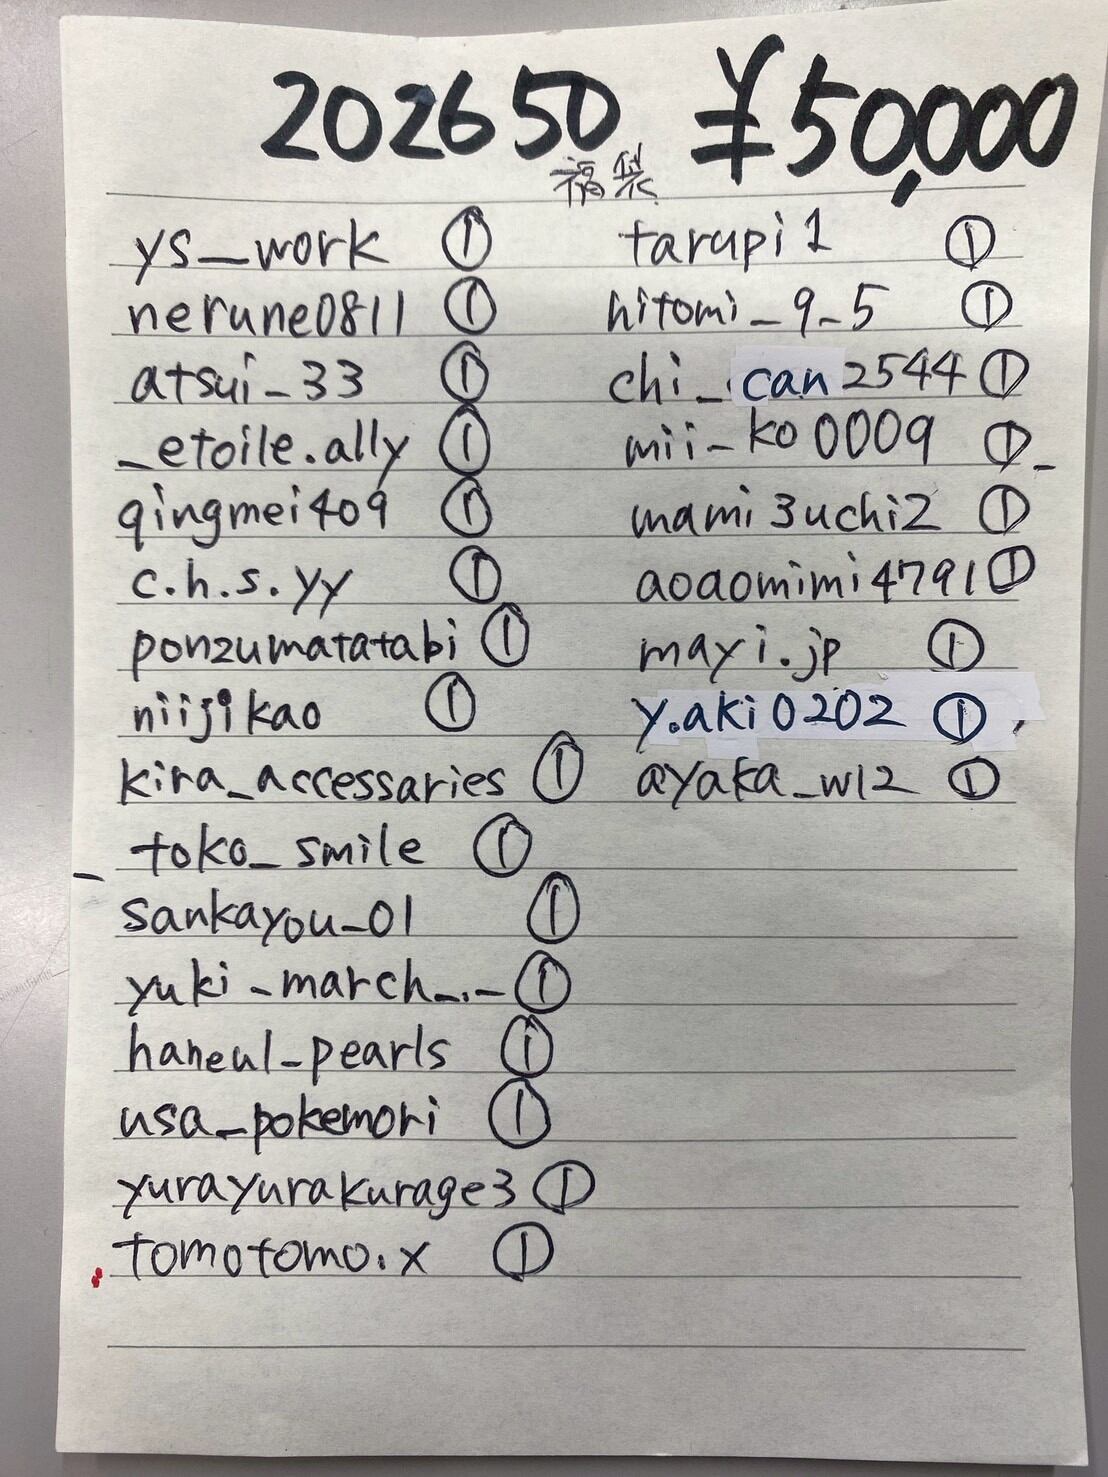 202650 ¥50,000
福袋
ys_work ①
nerune0811 ①
atsui_33 ①
_etoile.ally ①
qingmei409 ①
c.h.s.yy ①
ponzumatatabi ①
niijikao ①
kira_accessaries ①
toko_smile ①
sankayou_01 ①
yuki_march_._ ①
haneul_pearls ①
usa_pokemori ①
yurayurakurage3 ①
tomotomo.x ①
tarupi1 ①
hitomi_9_5 ①
chi_can2544 ①
mii_ko0009 ①
mami3uchi2 ①
aoaomimi4791 ①
mayi.jp ①
y.aki0202 ①
ayaka_w12 ①